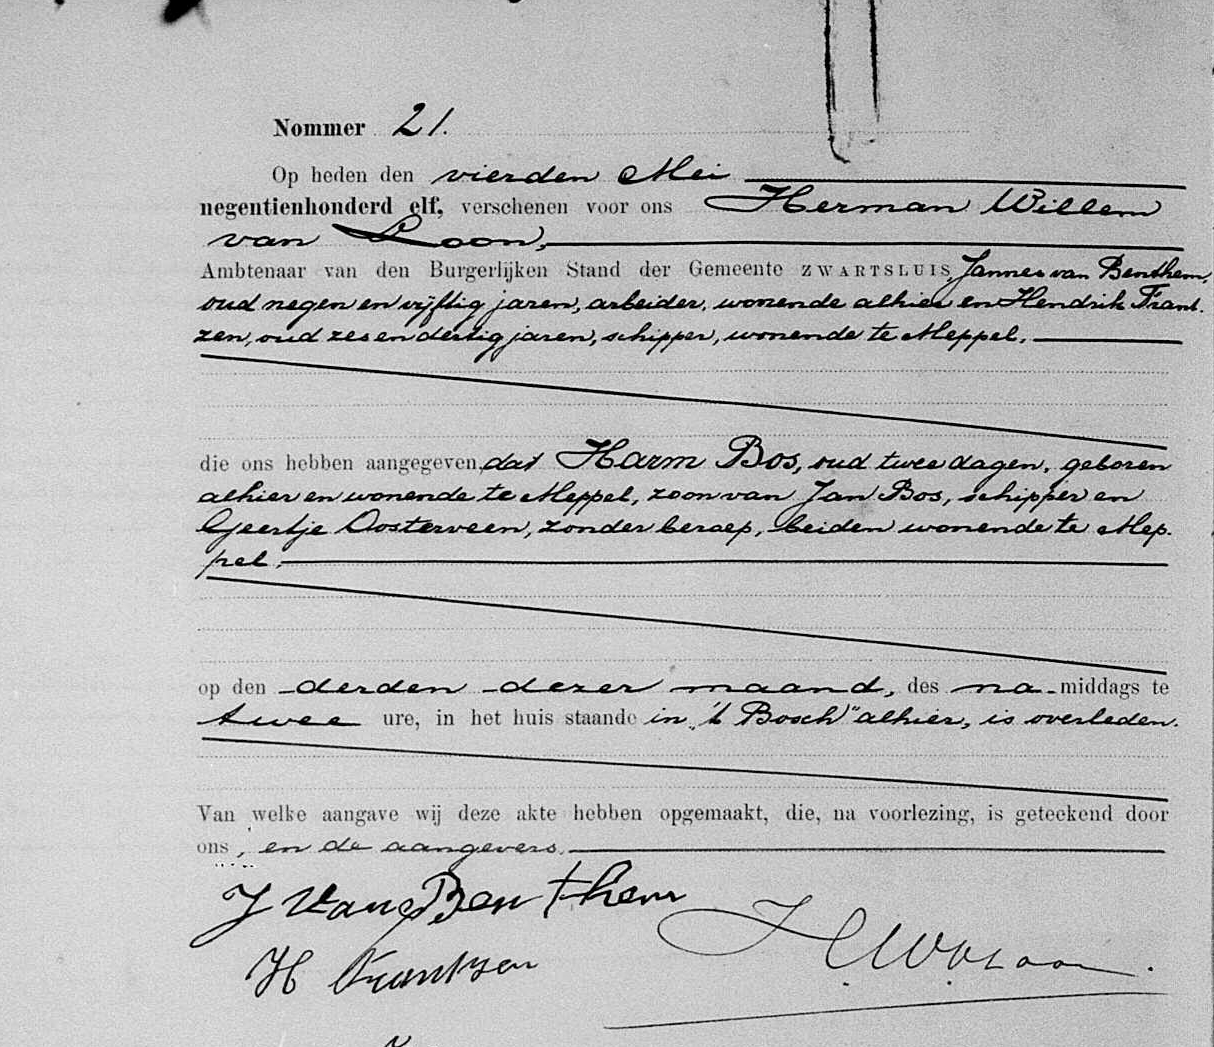 Nommer 21.
Op heden den vierden Mei
negentienhonderd elf, verschenen voor ons Herman Willem
van Loon,
Ambtenaar van den Burgerlijken Stand der Gemeente ZWARTSLUIS, Jannes van Benthem,
oud negen en vijftig jaren, arbeider, wonende alhier en Hendrik Frant-
zen, oud zes en dertig jaren, schipper, wonende te Meppel,
die ons hebben aangegeven, dat Harm Bos, oud twee dagen, geboren
alhier en wonende te Meppel, zoon van Jan Bos, schipper en
Geertje Oosterveen, zonder beroep, beiden wonende te Mep-
pel,
op den derden dezer maand, des na-middags te
twee ure, in het huis staande in "'t Bosch" alhier, is overleden.
Van welke aangave wij deze akte hebben opgemaakt, die, na voorlezing, is geteekend door
ons, en de aangevers.
J van Benthem
H Frantzen
H.W.v.Loon.